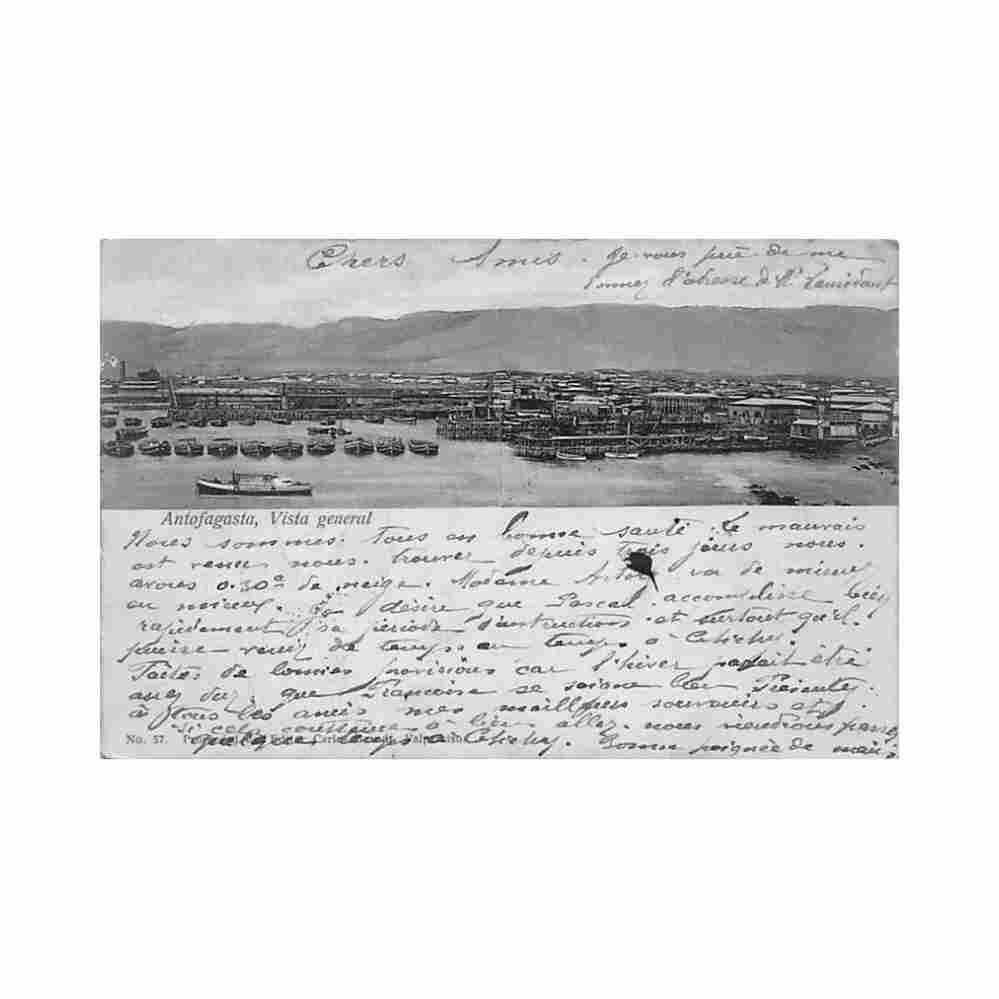 Chers Amis. je vous prie de me
donner l'adresse de Mr
Antofagasta, Vista general
Nous sommes tous en bonne santé. Le mauvais
est venu nous trouver depuis trois jours nous
avons 0.30c de neige. Madame va de mieux
en mieux. Je désire que Pascal accomplisse bien
rapidement sa periode d'instructions et surtout qu'il
puisse venir de temps en temps à Clichy.
Faites de bonnes provisions car l'hiver parait être
assez dur, que Francoise se soigne bien Présentez
à tous les amis mes meilleurs souvenirs et
Si cela continue à bien aller nous viendrons passer
No. 57. quelque temps à Clichy. Bonne poignée de main